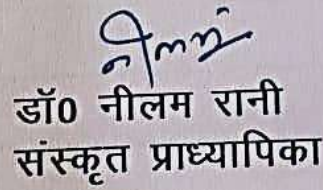 नीलम
डॉ0 नीलम रानी
संस्कृत प्राध्यापिका